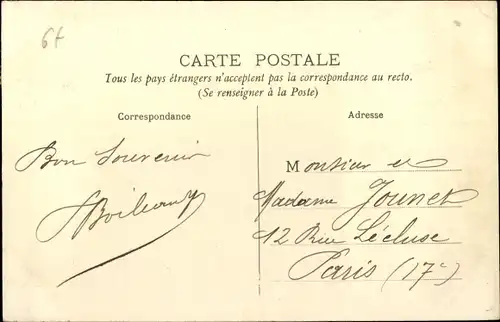 6f
CARTE POSTALE
Tous les pays étrangers n'acceptent pas la correspondance au recto.
(Se renseigner à la Poste)
Correspondance
Adresse
Bon Souvenir
Monsieur et
Madame Jounet
12 Rue Lécluse
Paris (17e)